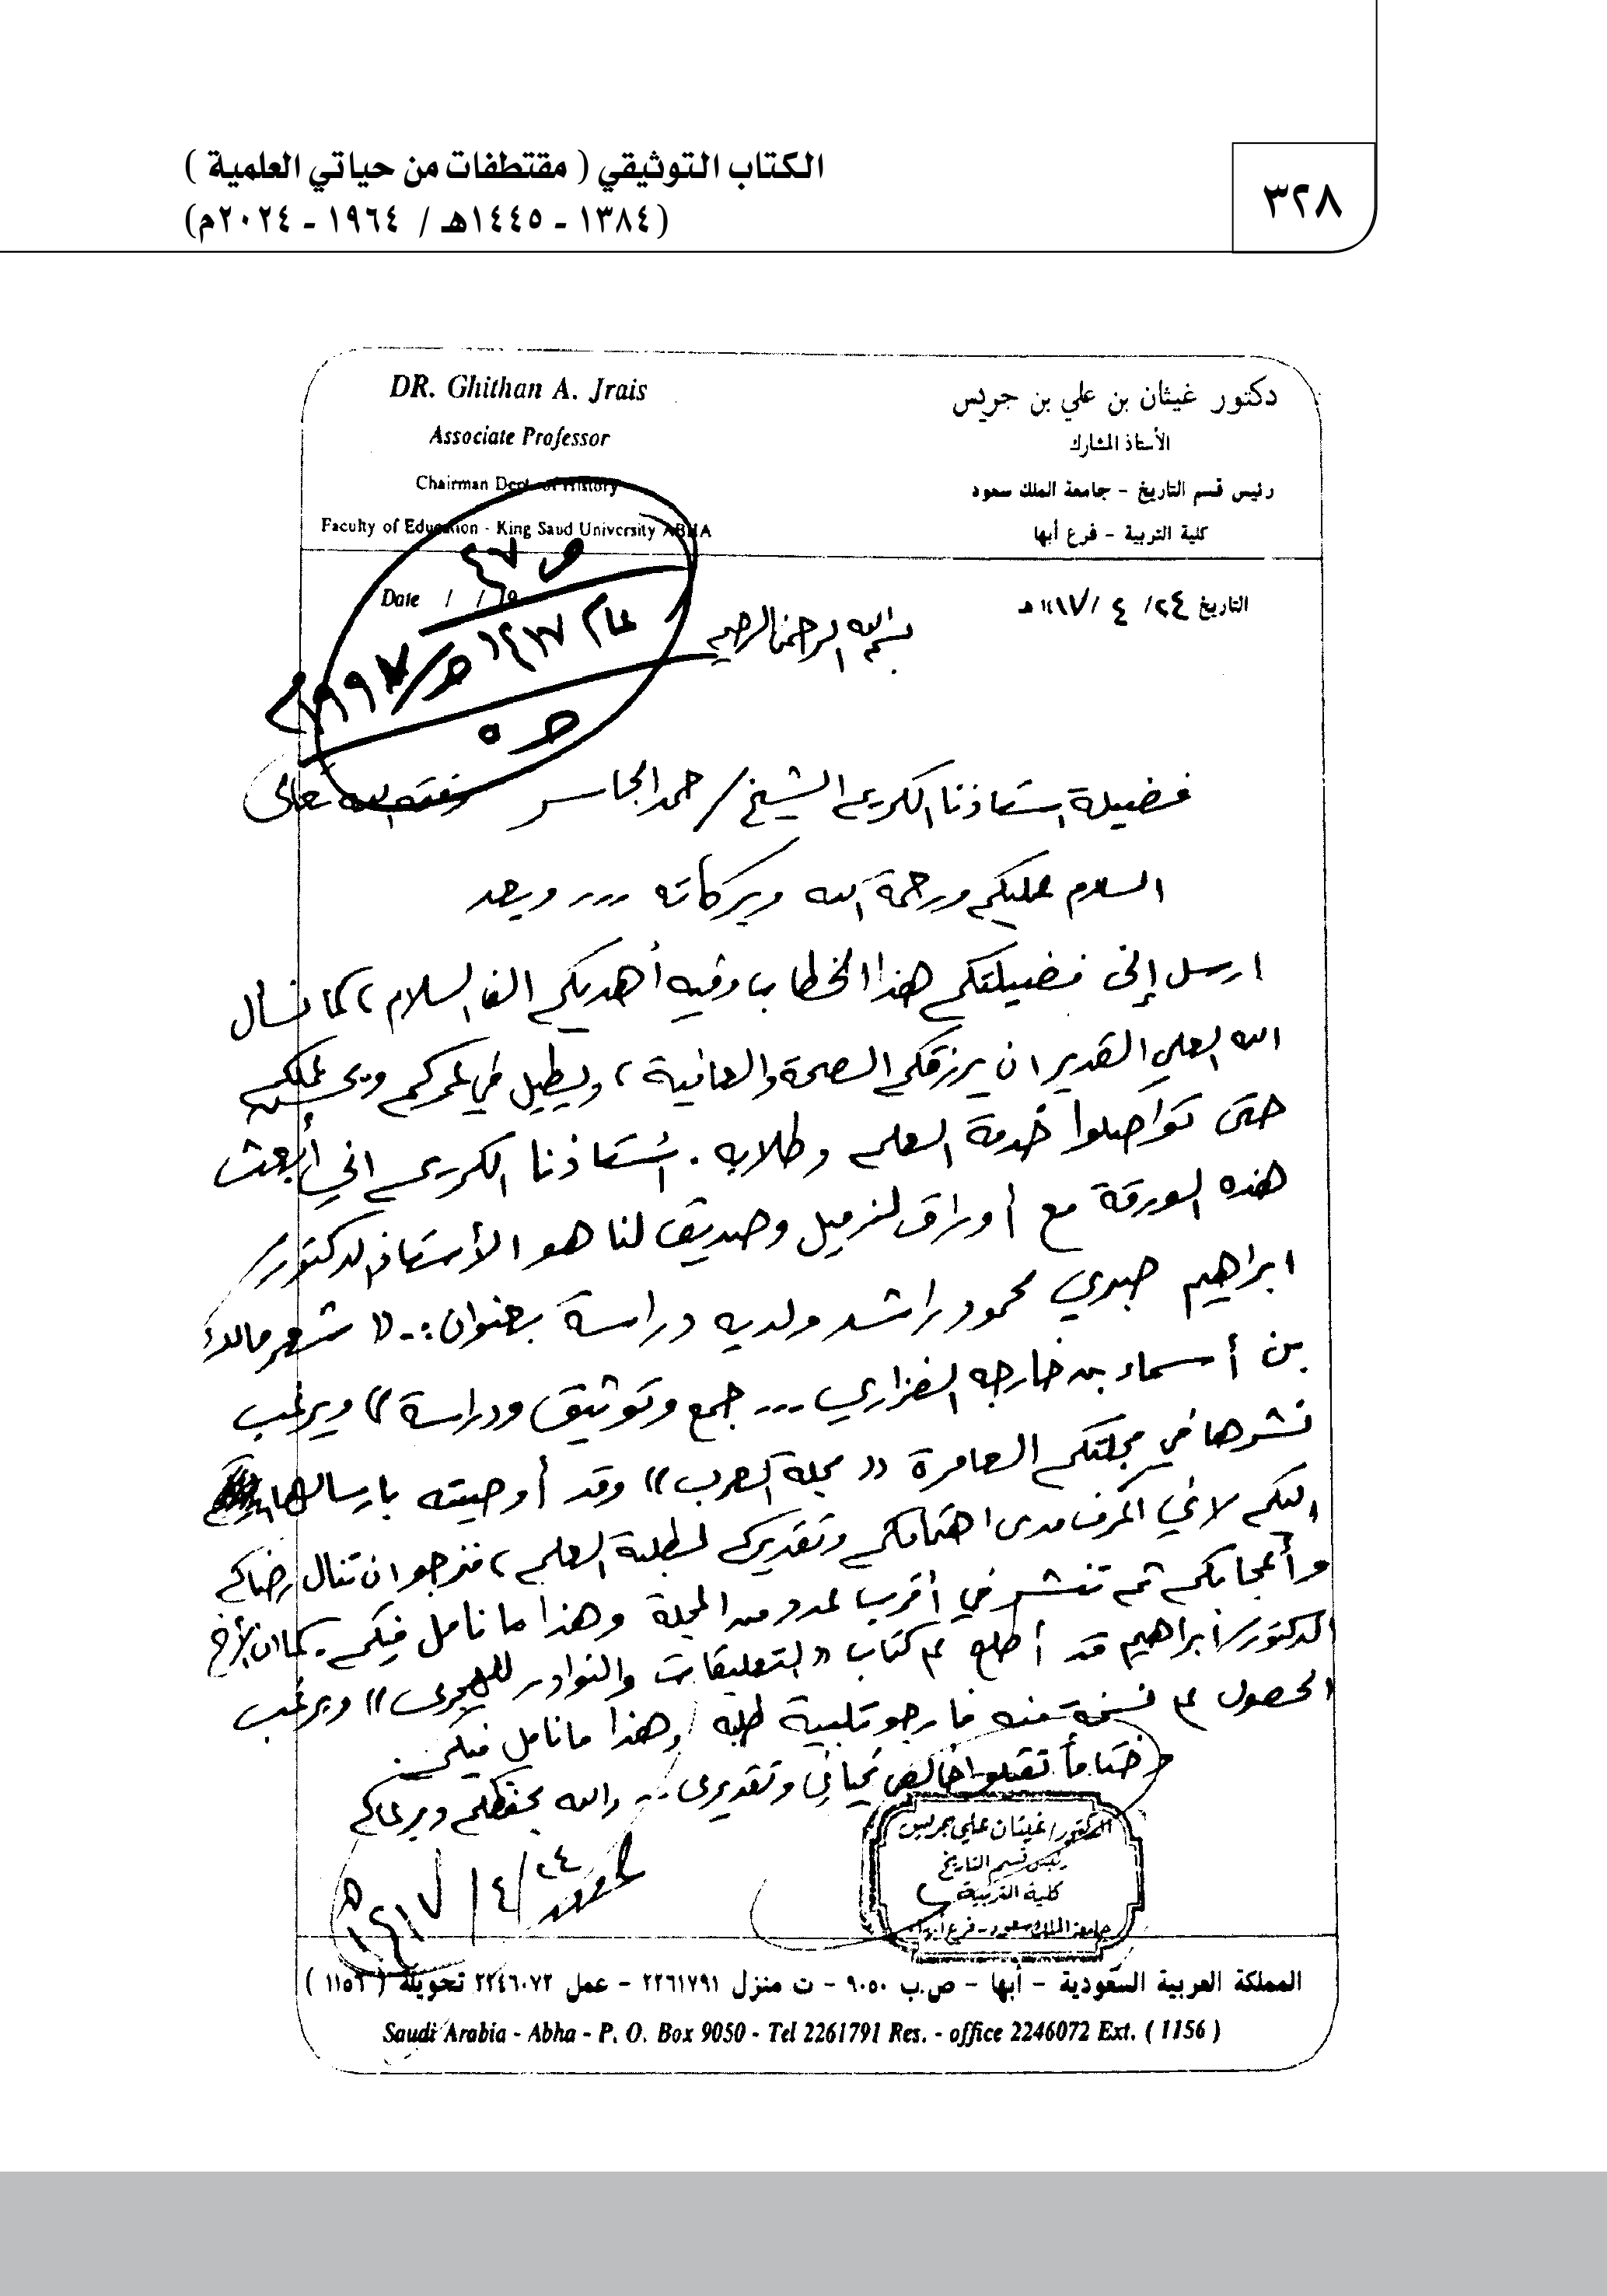 الكتاب التوثيقي ( مقتطفات من حياتي العلمية )
(١٣٨٤ - ١٤٤٥هـ / ١٩٦٤ - ٢٠٢٤م)
٣٢٨
DR. Ghithan A. Jrais
Associate Professor
Chairman Dept. of History
Faculty of Education - King Saud University ABHA
دكتور غيثان بن علي بن جريس
الأستاذ المشارك
رئيس قسم التاريخ - جامعة الملك سعود
كلية التربية - فرع أبها
Date / / 19
التاريخ ٢٤/ ٤ /١٤١٧هـ
ص ٤٧
عام ١٤١٧هـ/١٩٩٧م
بسم الله الرحمن الرحيم
فضيلة استاذنا الكريم الشيخ/ حمد الجاسر وفقه الله تعالى
السلام عليكم ورحمة الله وبركاته ... وبعد
ارسل إلى فضيلتكم هذا الخطاب وفيه أهديكم الف السلام، كما نسأل
الله العلي القدير ان يرزقكم الصحة والعافية، ويطيل في عمركم ويحسن عملكم
حتى تواصلوا خدمة العلم وطلابه. استاذنا الكريم اني أبعث
هذه الورقة مع أوراق لزميل وصديق لنا هو الأستاذ الدكتور/
ابراهيم صبري محمود راشد ولديه دراسة بعنوان:- « شعر مالك
بن أسماء بن خارجه الفزاري ... جمع وتوثيق ودراسة » ويرغب
نشرها في مجلتكم العامرة « مجلة العرب » وقد أوصيته بارسالها
اليكم لاني اعرف مدى اهتمامكم وتقديركم لطلبة العلم، فنرجو ان تنال رضاكم
وأعجابكم ثم تنشر في أقرب عدد من المجلة وهذا ما نامل فيكم. كما ان الأخ
الدكتور/ ابراهيم قد أطلع على كتاب « التعليقات والنوادر للهجرى » ويرغب
الحصول على نسخة منه فارجو تلبية طلبه وهذا ما نامل فيكم.
وختاماً تقبلوا خالص تحياتي وتقديرى .. والله يحفظكم ويرعاكم
٢٤/٤/١٤١٧هـ
الدكتور/ غيثان علي جريس
رئيس قسم التاريخ
كلية التربية
جامعة الملك سعود - فرع أبها
المملكة العربية السعودية - أبها - ص.ب ٩٠٥٠ - ت منزل ٢٢٦١٧٩١ - عمل ٢٢٤٦٠٧٢ تحويلة ( ١١٥٦ )
Saudi Arabia - Abha - P. O. Box 9050 - Tel 2261791 Res. - office 2246072 Ext. ( 1156 )